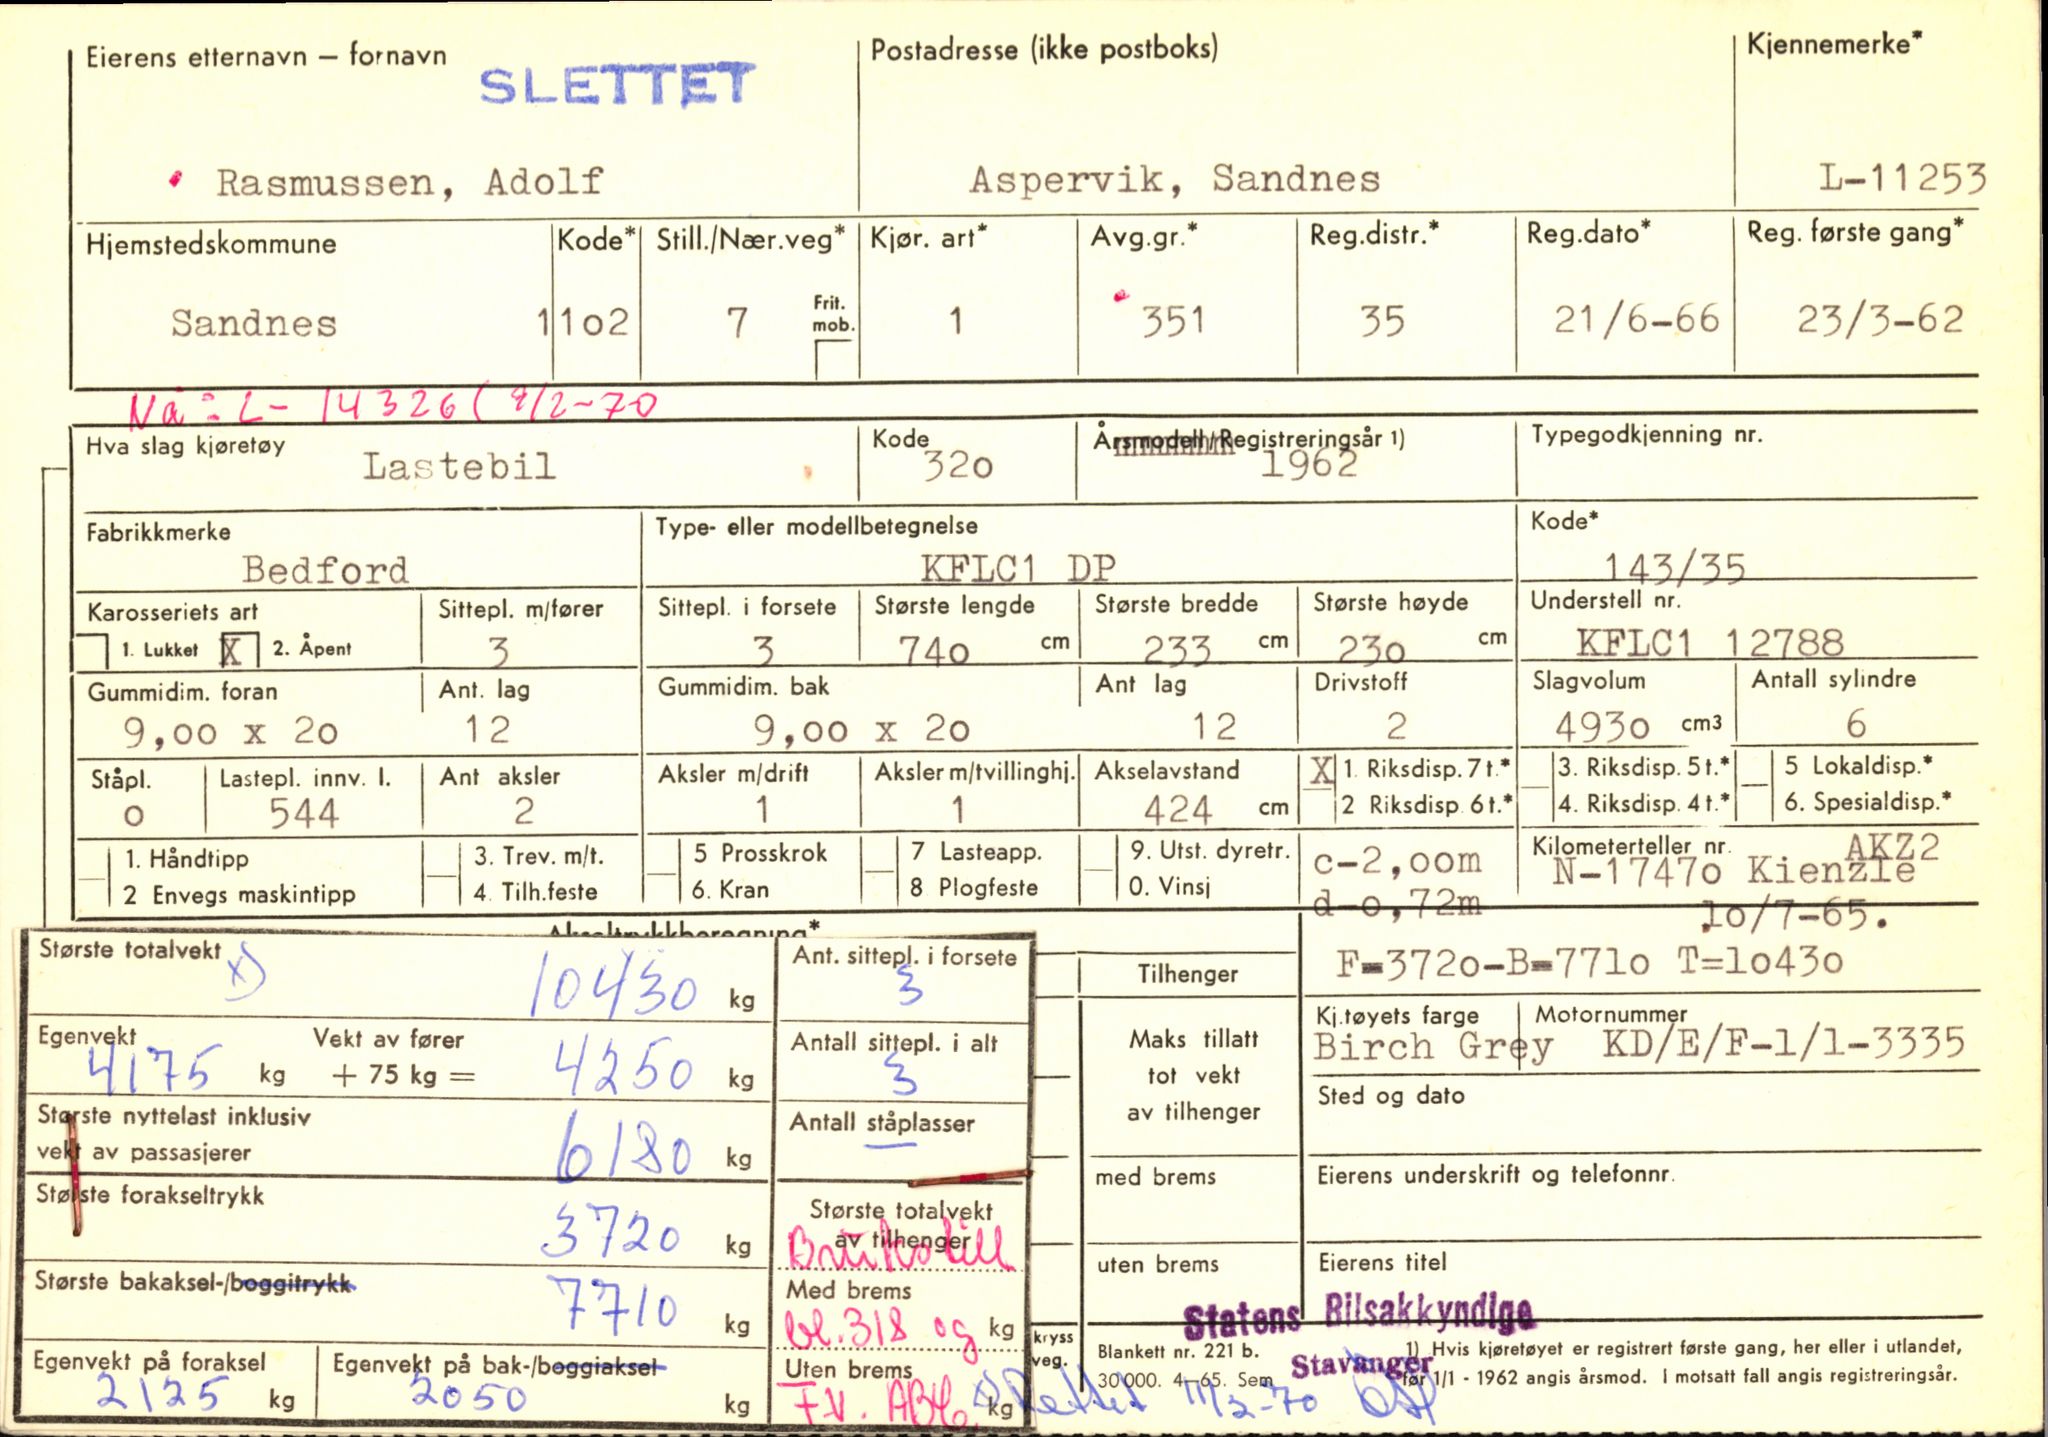 Eierens etternavn – fornavn SLETTET Postadresse (ikke postboks) Kjennemerke*
Rasmussen, Adolf Aspervik, Sandnes L-11253
Hjemstedskommune Kode* Still./Nær.veg* Kjør. art* Avg.gr.* Reg.distr.* Reg.dato* Reg. første gang*
Sandnes 11o2 7 Frit. mob. 1 351 35 21/6-66 23/3-62
Nå: L- 14326 ( 9/2-70
Hva slag kjøretøy Kode Årsmodell/Registreringsår 1) Typegodkjenning nr.
Lastebil 32o 1962
Fabrikkmerke Type- eller modellbetegnelse Kode*
Bedford KFLC1 DP 143/35
Karosseriets art Sittepl. m/fører Sittepl. i forsete Største lengde Største bredde Største høyde Understell nr.
1. Lukket X 2. Åpent 3 3 74o cm 233 cm 23o cm KFLC1 12788
Gummidim. foran Ant. lag Gummidim. bak Ant lag Drivstoff Slagvolum Antall sylindre
9,oo x 2o 12 9,oo x 2o 12 2 493o cm3 6
Ståpl. Lastepl. innv. l. Ant aksler Aksler m/drift Aksler m/tvillinghj. Akselavstand X 1. Riksdisp. 7 t.* 3. Riksdisp. 5 t.* 5 Lokaldisp.*
o 544 2 1 1 424 cm 2 Riksdisp. 6 t.* 4. Riksdisp. 4 t.* 6. Spesialdisp.*
1. Håndtipp 3. Trev. m/t. 5 Prosskrok 7 Lasteapp. 9. Utst. dyretr. c-2,oom Kilometerteller nr. AKZ2
2 Envegs maskintipp 4. Tilh.feste 6. Kran 8 Plogfeste 0. Vinsj d-o,72m N-1747o Kienzle
lo/7-65.
Akseltrykkberegning*
Største totalvekt x) 10430 kg Ant. sittepl. i forsete 3 Tilhenger F=372o-B=771o T=lo43o
Egenvekt Vekt av fører Antall sittepl. i alt Maks tillatt Kj.tøyets farge Motornummer
4175 kg + 75 kg = 4250 kg 3 tot vekt Birch Grey KD/E/F-1/1-3335
av tilhenger Sted og dato
Største nyttelast inklusiv Antall ståplasser
vekt av passasjerer 6180 kg —
med brems Eierens underskrift og telefonnr.
Største forakseltrykk 3720 kg Største totalvekt
av tilhenger
Bruk o till
uten brems Eierens titel
Største bakaksel-/boggitrykk 7710 kg Med brems
bl. 318 og kg kryss veg. Statens Bilsakkyndige
Stavanger
Egenvekt på foraksel Egenvekt på bak-/boggiaksel Uten brems Blankett nr. 221 b. 1) Hvis kjøretøyet er registrert første gang, her eller i utlandet,
2125 kg 2050 kg F.V. kg 30 000. 4-65. Sem før 1/1 - 1962 angis årsmod. I motsatt fall angis registreringsår.
x) Rettet 11/2-70